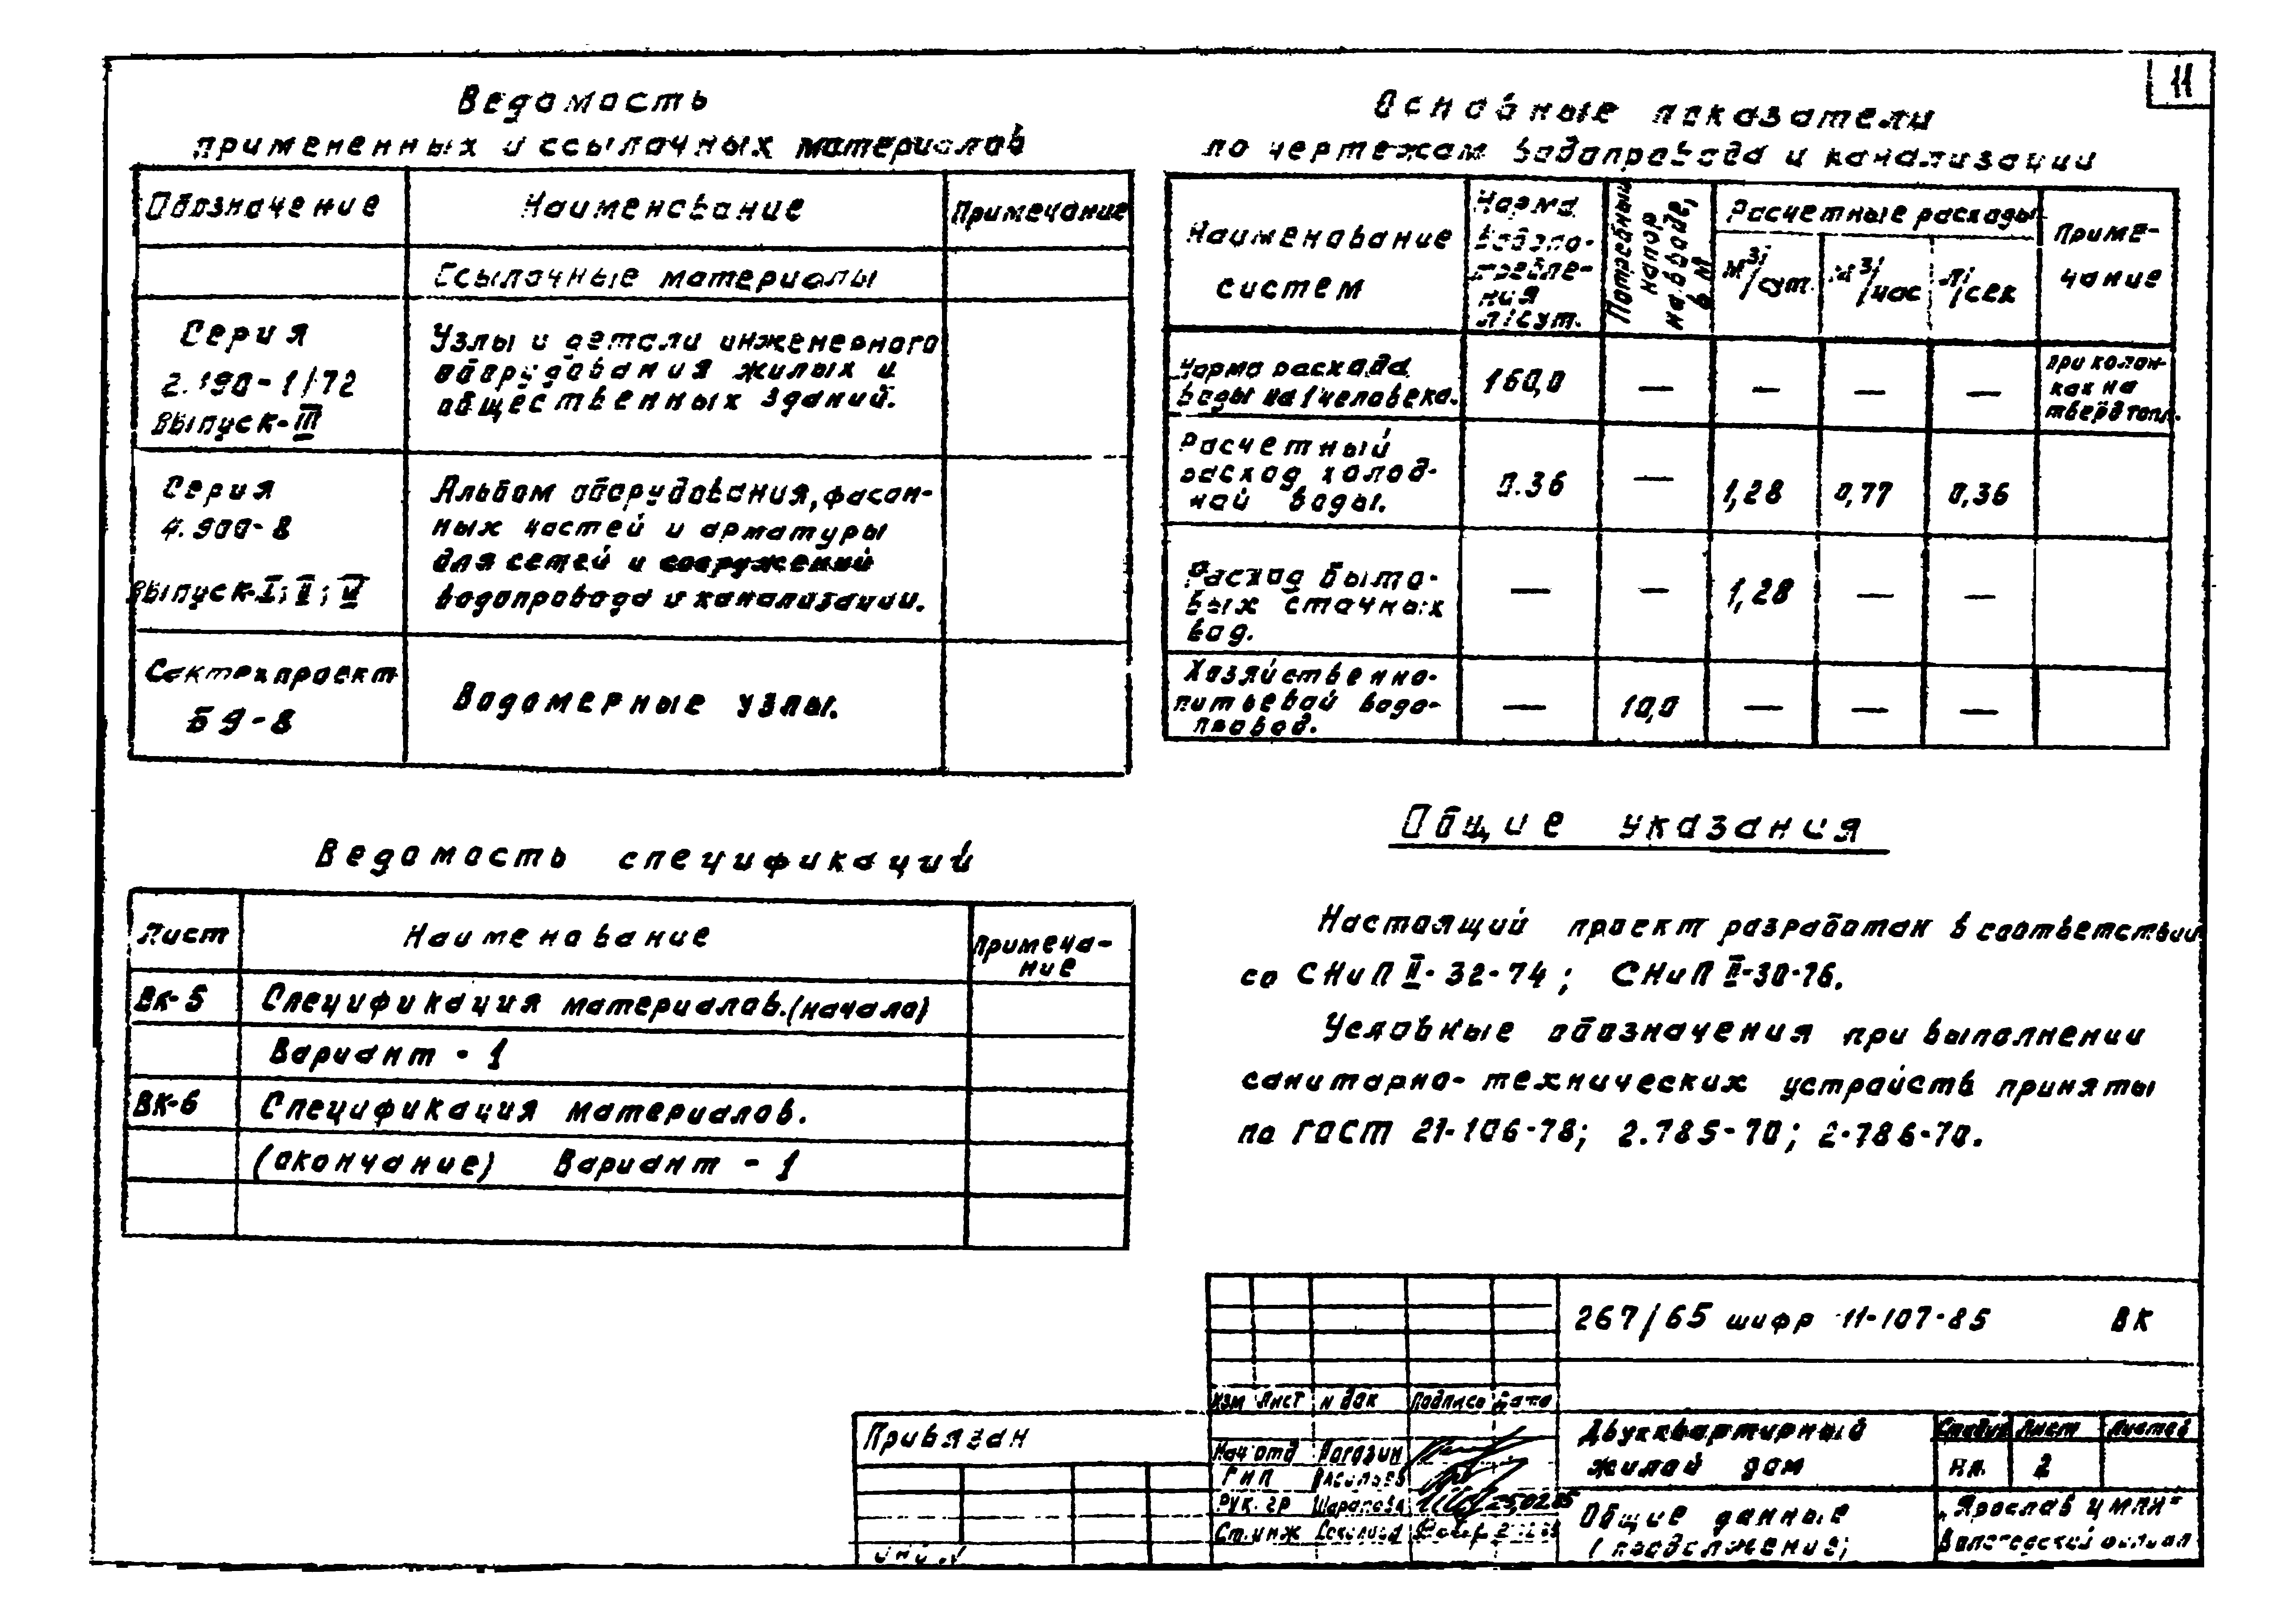 11
Ведомость
примененных и ссылочных материалов
Обозначение Наименование Примечание
Ссылочные материалы
Серия
2.190-1/72
Выпуск-III
Узлы и детали инженерного
оборудования жилых и
общественных зданий.
Серия
4.900-8
Выпуск-I; II; VI
Альбом оборудования, фасон-
ных частей и арматуры
для сетей и сооружений
водопровода и канализации.
Сантехпроект
БЭ-8
Водомерные узлы.
Основные показатели
по чертежам водопровода и канализации
Наименование
систем
Норма
водопо-
требле-
ния
л/сут.
Потребный
напор
на вводе,
в м
Расчетные расходы
м3/сут. м3/час л/сек
Приме-
чание
Норма расхода
воды на 1 человека. 160,0 — — — —
при колон-
ках на
твёрд топл.
Расчетный
расход холод-
ной воды.
0.36 — 1,28 0,77 0,36
Расход быто-
вых сточных
вод.
— — 1,28 — —
Хозяйственно-
питьевой водо-
провод.
— 10,0 — — —
Ведомость спецификаций
Лист Наименование Примеча-
ние
ВК-5 Спецификация материалов.(начало)
Вариант - 1
ВК-6 Спецификация материалов.
(окончание) Вариант - 1
Общие указания
Настоящий проект разработан в соответствии
со СНиП II-32-74; СНиП II-30-76.
Условные обозначения при выполнении
санитарно-технических устройств приняты
по ГОСТ 21-106-78; 2.785-70; 2.786-70.
267/65 шифр 11-107-85 ВК
Изм Лист N док Подпись Дата
Привязан
Нач отд Погодин
ГИП Васильев
Рук. гр Шарапова 25.02.85
Ст.инж
инв.N
Двухквартирный
жилой дом
Стадия Лист Листов
2
Общие данные
(продолжение)
Вологодский филиал